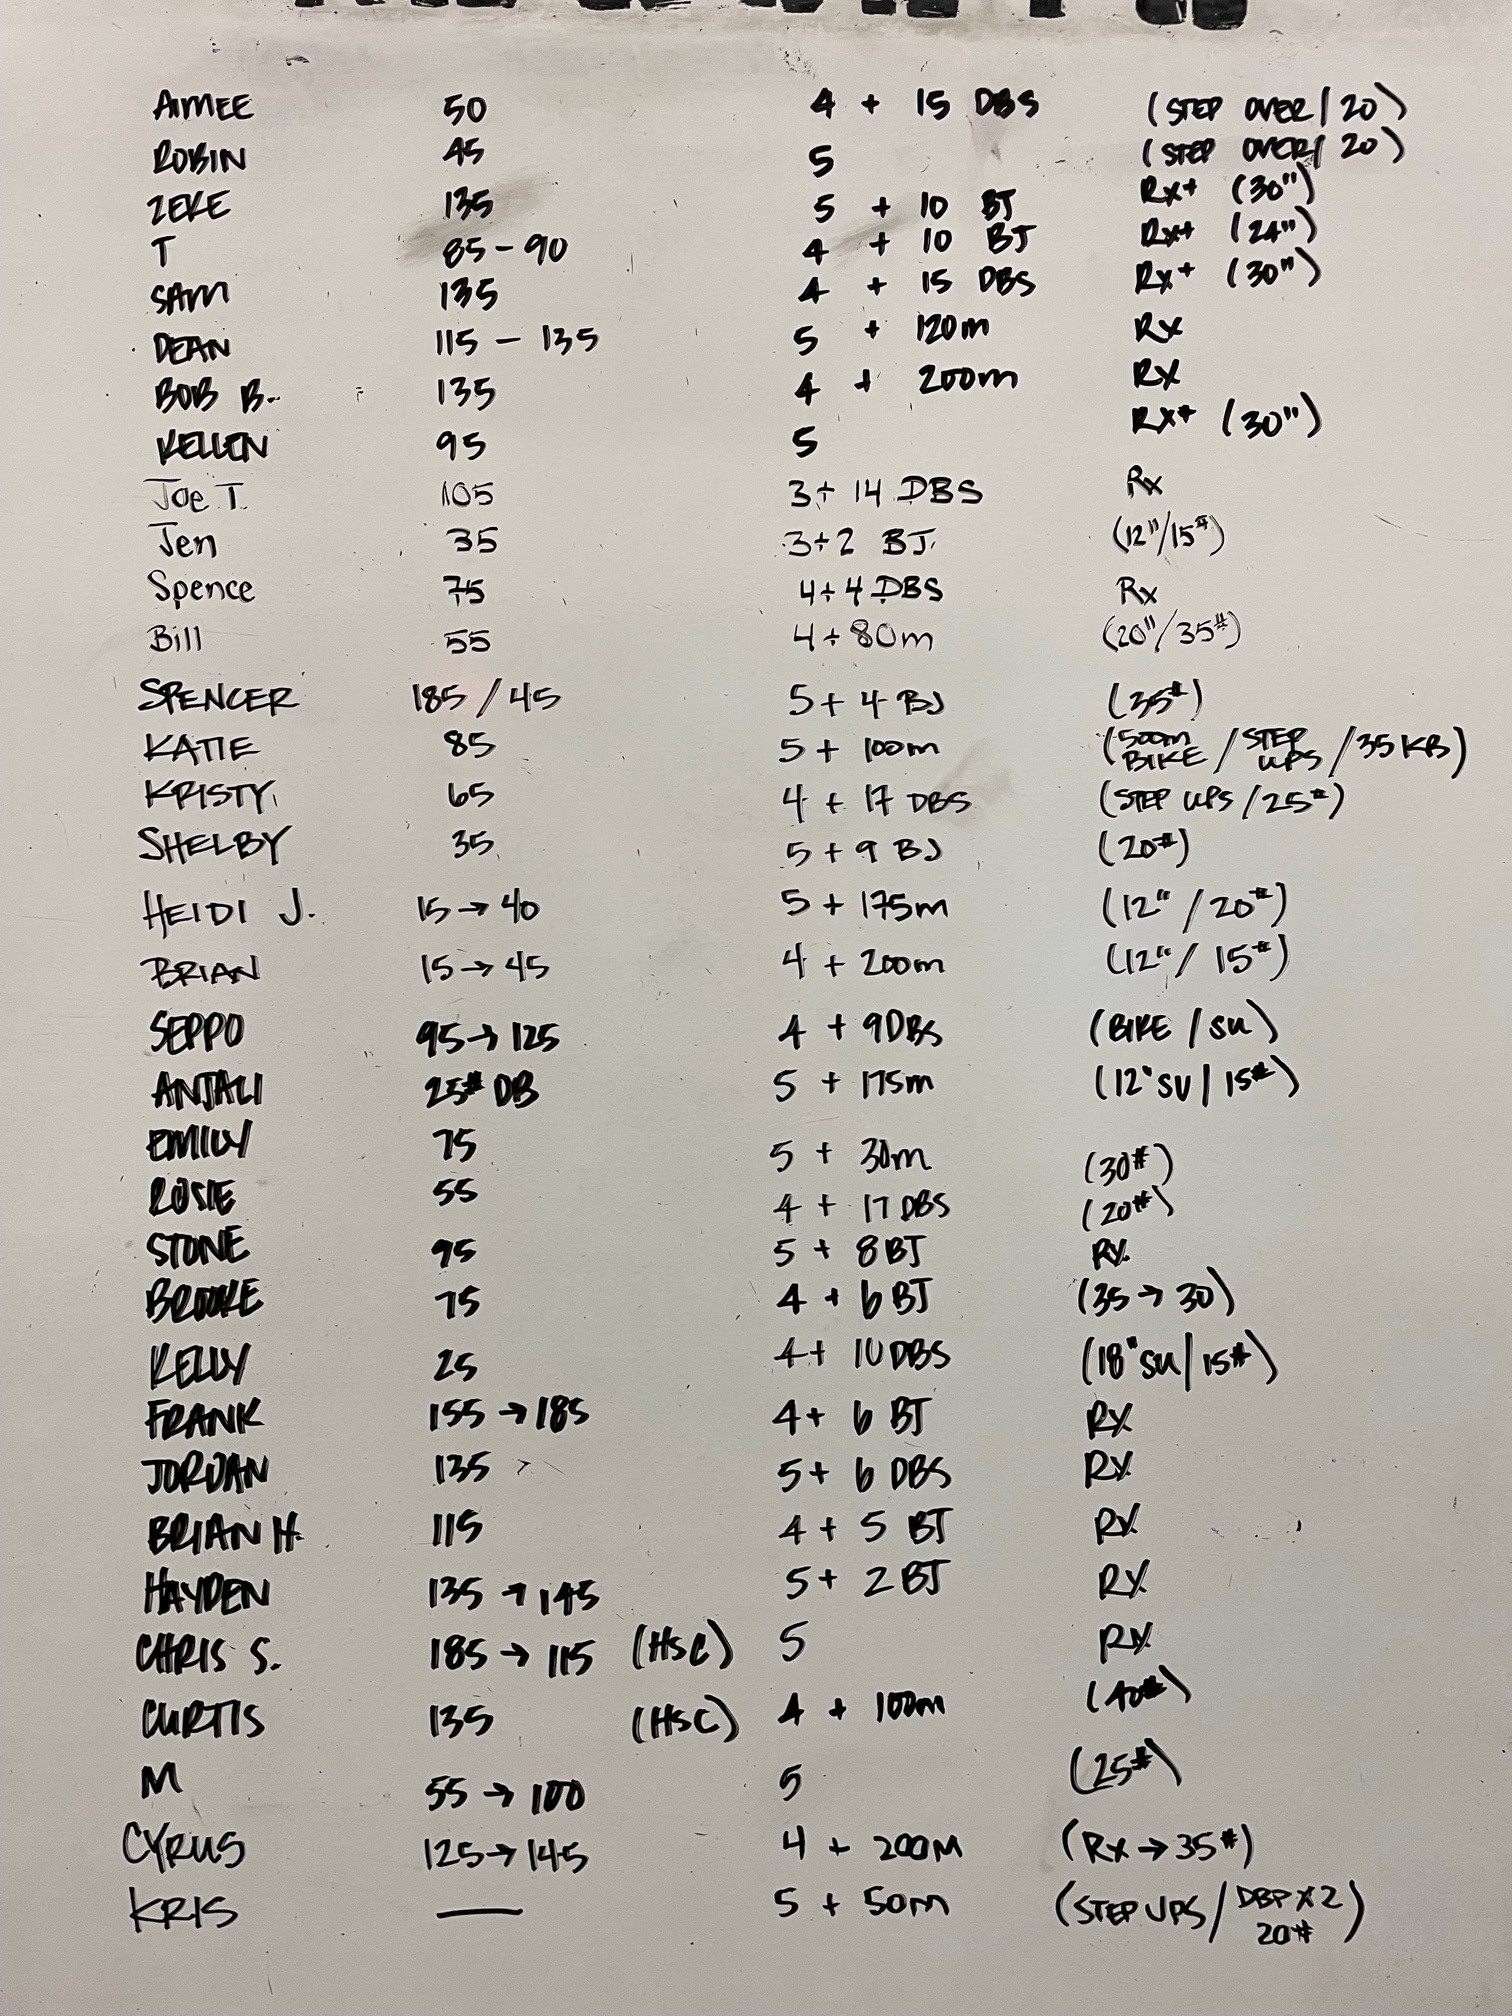 AIMEE 50 4 + 15 DBS (STEP OVER/20)
ROBIN 45 5 (STEP OVER/20)
ZEKE 135 5 + 10 BJ Rx+ (30")
T 85-90 4 + 10 BJ Rx+ (24")
SAM 135 4 + 15 DBS Rx+ (30")
DEAN 115 - 135 5 + 120m Rx
BOB B. 135 4 + 200m Rx
KELLEN 95 5 Rx+ (30")
Joe T. 105 3 + 14 DBS Rx
Jen 35 3 + 2 BJ. (12"/15#)
Spence 75 4 + 4 DBS Rx
Bill 55 4 + 80m (20"/35#)
SPENCER 185 / 45 5 + 4 BJ (35#)
KATIE 85 5 + 100m (500m BIKE / STEP UPS / 35 KB)
KRISTY 65 4 + 17 DBS (STEP UPS / 25#)
SHELBY 35 5 + 9 BJ (20#)
HEIDI J. 15 → 40 5 + 175m (12" / 20#)
BRIAN 15 → 45 4 + 200m (12" / 15#)
SEPPO 95 → 125 4 + 9 DBS (BIKE / SU)
ANJALI 25# DB 5 + 175m (12" SU / 15#)
EMILY 75 5 + 30m (30#)
ROSIE 55 4 + 17 DBS (20#)
STONE 95 5 + 8 BJ RX
BROOKE 75 4 + 6 BJ (35 → 30)
KELLY 25 4 + 10 DBS (18" SU / 15#)
FRANK 155 → 185 4 + 6 BJ RX
JORDAN 135 5 + 6 DBS RX
BRIAN H. 115 4 + 5 BJ RX
HAYDEN 135 → 145 5 + 2 BJ RX
CHRIS S. 185 → 115 (HSC) 5 RX
CURTIS 135 (HSC) 4 + 100m (40#)
M 55 → 100 5 (25#)
CYRUS 125 → 145 4 + 200M (Rx → 35#)
KRIS — 5 + 50m (STEP UPS / DBP X 2 20#)